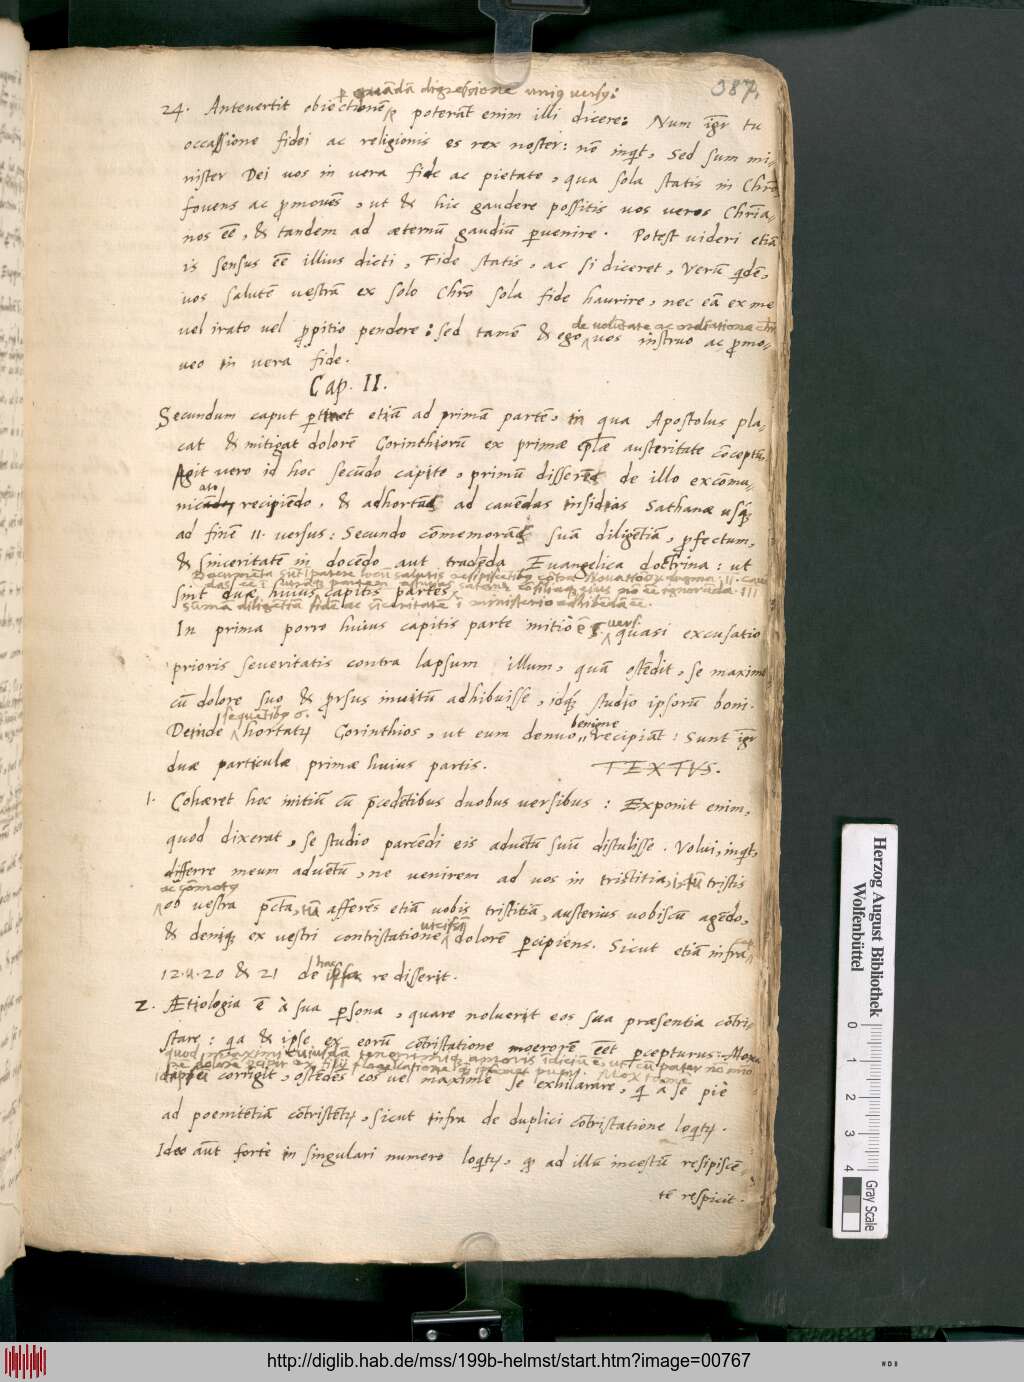 387.
p quãdã digressione uniꝰ versꝰ:
24. Antevertit obiectionẽ, poterãt enim illi dicere: Num igr̃ tu
occassione fidei ac religionis es rex noster: nõ inqt, Sed sum mi-
nister Dei vos in vera fide ac pietate, qua sola statis in Chrõ
fovens ac ꝓmovẽs, ut & hic gaudere possitis vos veros Chr̃ia-
nos eẽ, & tandem ad æternũ gaudiũ ꝑvenire. Potest videri etiã
is sensus eẽ illius dicti, Fide statis, ac si diceret, Verũ qdẽ,
vos salutẽ vestrã ex solo Chrõ sola fide haurire, nec eã ex me
vel irato vel ꝓpitio pendere: sed tamẽ & ego vos instruo ac ꝓmo-
veo in vera fide.
Cap. II.
Secundum caput ꝑtinet etiã ad primã partẽ, in qua Apostolus pla-
cat & mitigat dolorẽ Corinthiorũ ex primæ eplæ austeritate cõceptũ.
Agit vero id hoc secũdo capite, primũ disserẽs de illo excõmu-
nicato recipiẽdo, & adhortãs ad cavẽdas insidias Sathanæ usq́
ad finẽ 11. versus: Secundo cõmemorãs suã diligẽtiã, ꝓfectum,
& sinceritatẽ in docẽdo aut tradẽda Evangelica doctrina: ut
sint duæ huius capitis partes.
In prima porro huius capitis parte initio ẽ quasi excusatio
prioris severitatis contra lapsum illum, quã ostẽdit, se maximo
cũ dolore suo & ꝓrsus invitũ adhibuisse, idq́ studio ipsorũ boni.
sequẽtibꝰ 6.
Deinde hortatꝛ Corinthios, ut eum denuo benigne recipiãt: Sunt igr̃
duæ particulæ primæ huius partis. TEXTVS.
1. Cohæret hoc initiũ cũ p̃cedẽtibus duobus versibus: Exponit enim,
quod dixerat, se studio parcẽdi eis advẽtũ suũ distulisse. Volui, inqt,
differre meum advẽtũ, ne venirem ad vos in tristitia, i, tũ tristis
ob vestra p̃cta, tũ afferẽs etiã vobis tristitiã, austerius vobiscũ agẽdo,
& deniq́ ex vestri contristatione dolorẽ ꝑcipiens. Sicut etiã infra
12. v. 20 & 21 de hac re disserit.
2. Ætiologia ẽ à sua ꝑsona, quare noluerit eos sua præsentia cõtri-
stare: qa & ipse ex eorũ cõtristatione moerorẽ eẽt ꝑcepturus:
corrigit, ostẽdẽs eos vel maxime se exhilarare, q à se piè
ad poenitẽtiã cõtristẽtꝛ, sicut infra de duplici cõtristatione loqtꝛ.
Ideo aũt forte in singulari numero loqtꝛ, q ad illũ incestũ resipiscẽ-
tẽ respicit.
Herzog August Bibliothek
Wolfenbüttel
0
1
2
3
4
Gray Scale
http://diglib.hab.de/mss/199b-helmst/start.htm?image=00767